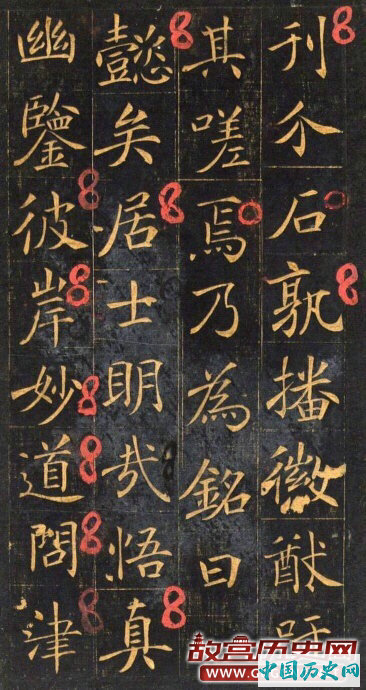 刊介石孰播徽猷
其嗟焉乃為銘曰
懿矣居士明哉悟真
幽鑒彼岸妙道問津
故宫历史网
中国历史网